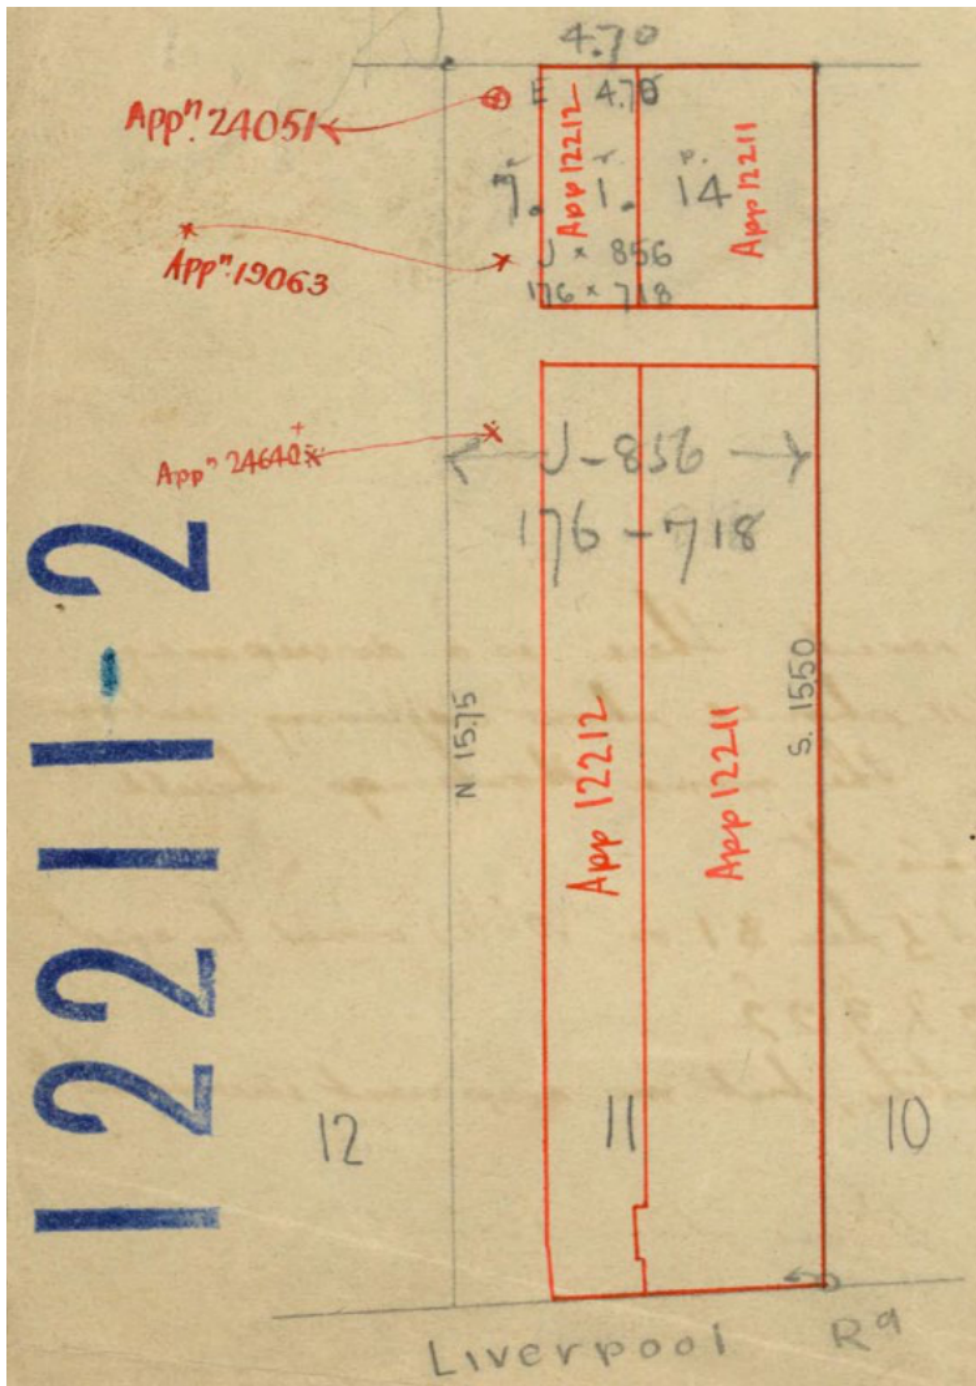 4.70
App.ⁿ 24051
E 4.70
App 12212
App 12211
r. p.
7. 1. 14
App.ⁿ 19063
J × 856
176 × 718
App.ⁿ 24640
J - 856
176 - 718
12211-2
N 1575
S. 1550
App 12212
App 12211
12
11
10
Liverpool Rd